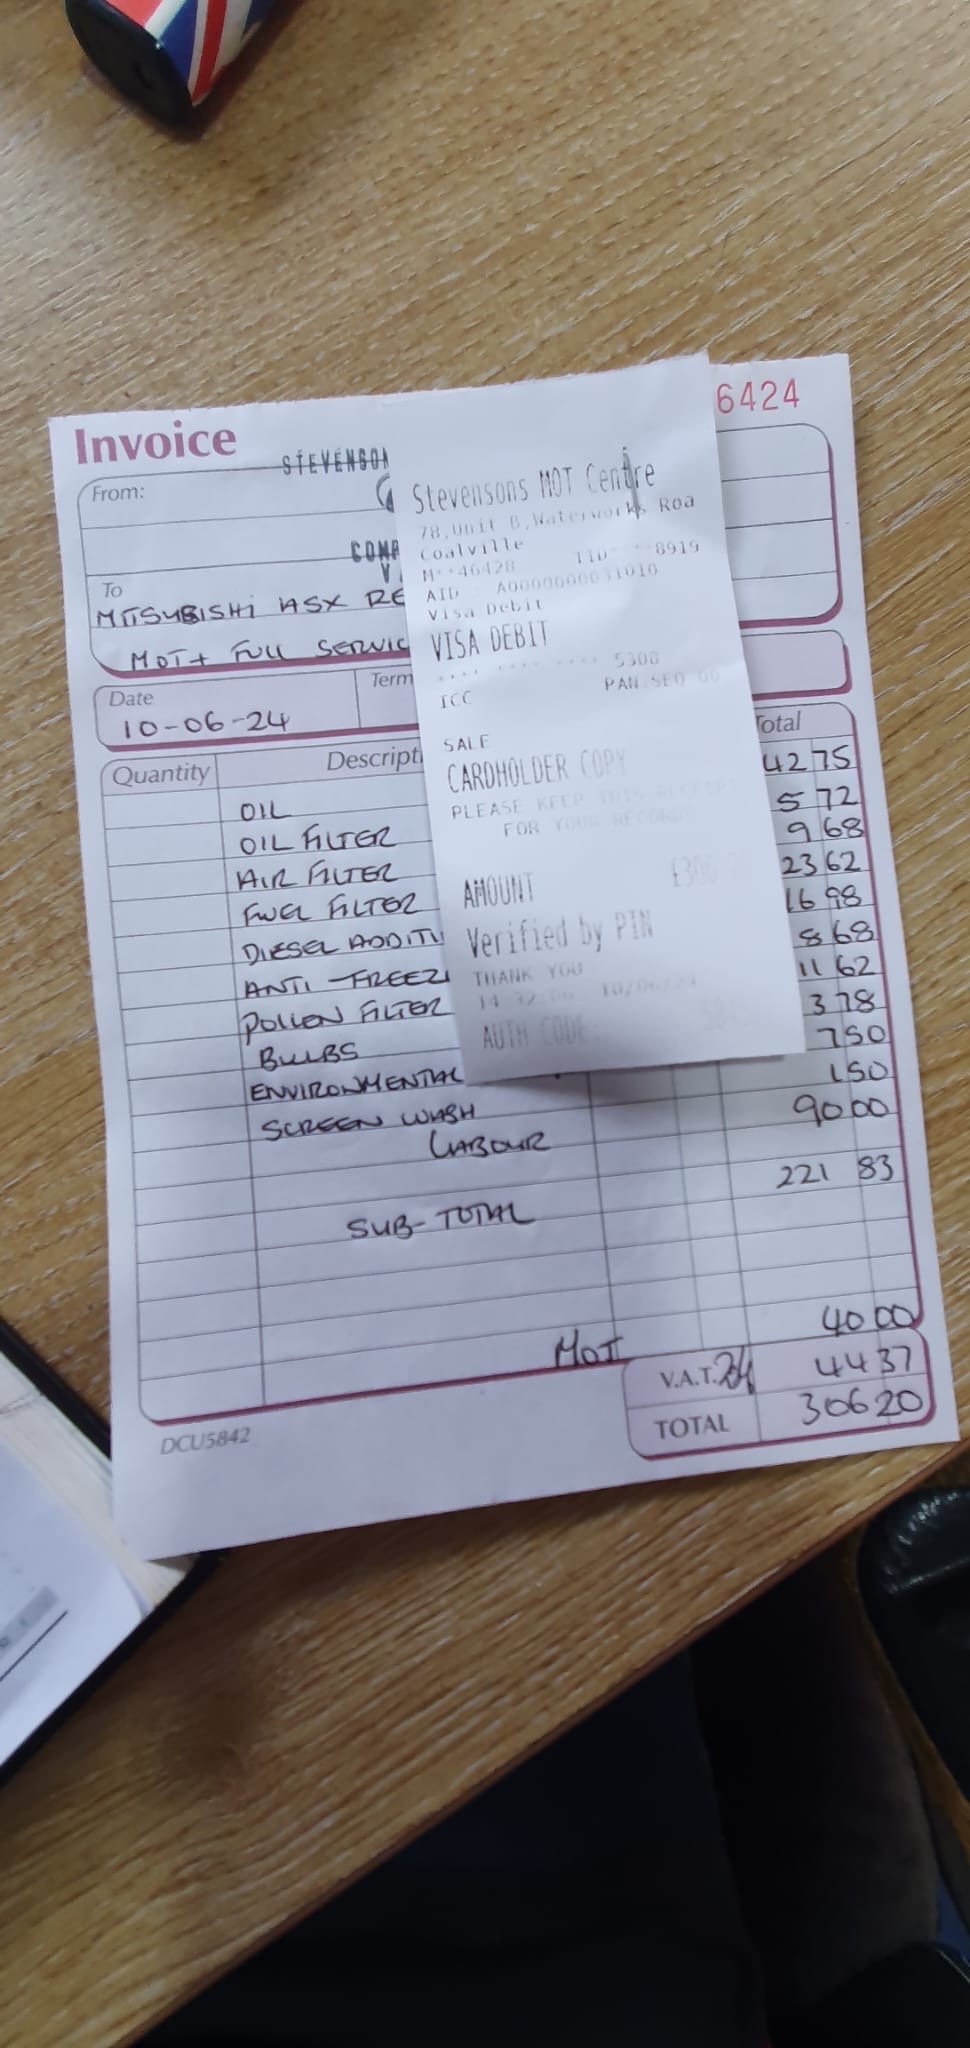 6424
Invoice
STEVENSON
From:
COMP
To
MITSUBISHI ASX RE
MOT + FULL SERVIC
Date
10-06-24
Term
Quantity
Descripti
Total
OIL 42 75
OIL FILTER 5 72
AIR FILTER 9 68
FUEL FILTER 23 62
DIESEL ADDITI 16 98
ANTI-FREEZ 8 68
POLLEN FILTER 11 62
BULBS 3 78
ENVIRONMENTAL 7 50
SCREEN WASH 1 50
LABOUR 90 00
SUB-TOTAL 221 83
MOT 40 00
V.A.T. 44 37
TOTAL 306 20
DCU5842
Stevensons MOT Centre
78,Unit B,Waterworks Roa
Coalville
M**46428 TID****8919
AID : A0000000031010
Visa Debit
VISA DEBIT
.... .... .... 5308
ICC PAN.SEQ 00
SALE
CARDHOLDER COPY
PLEASE KEEP THIS RECEIPT
FOR YOUR RECORDS
AMOUNT
Verified by PIN
THANK YOU
10/06/24
AUTH CODE: